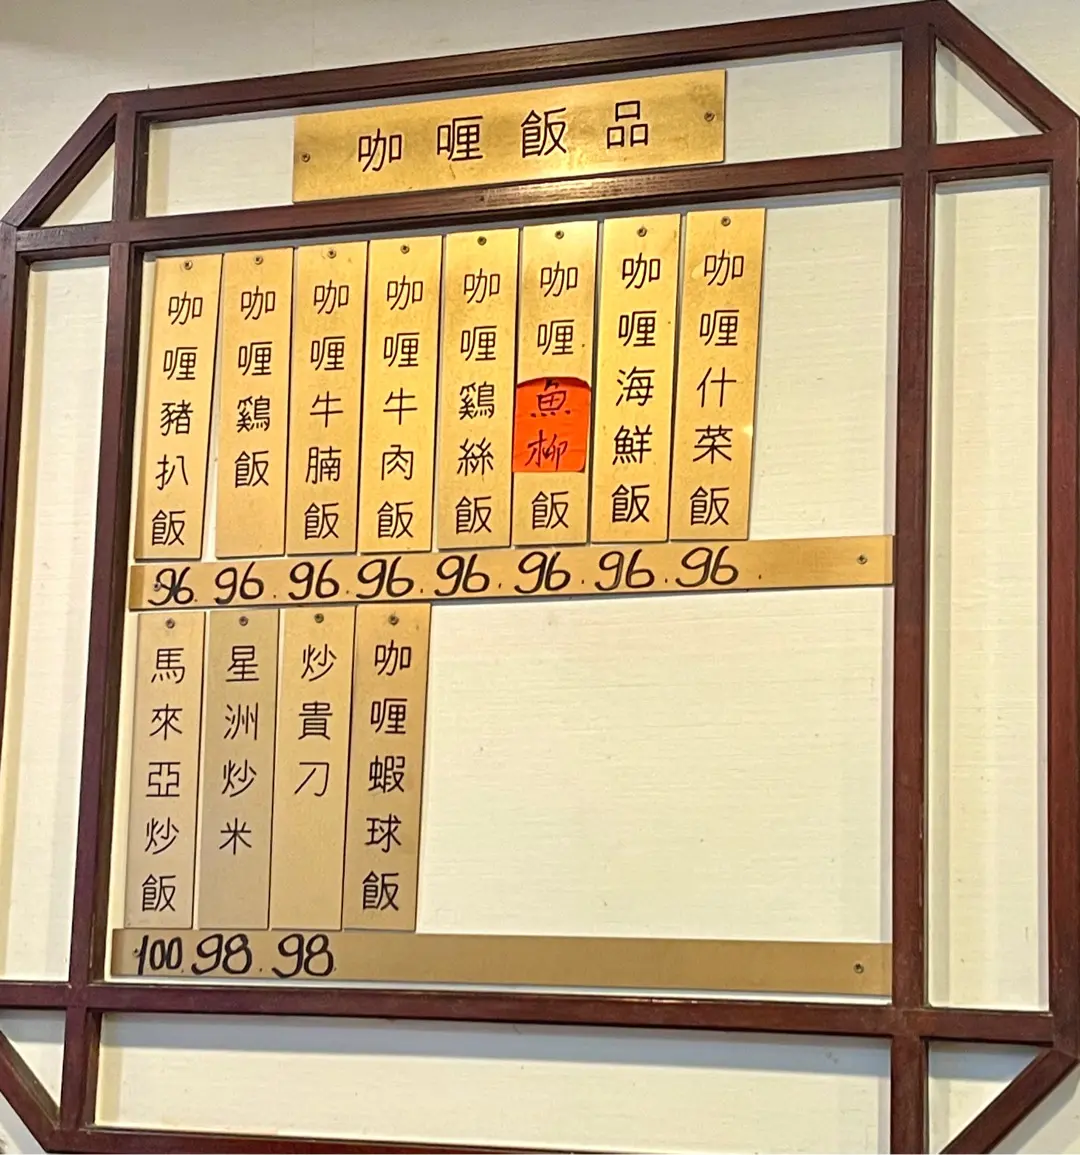 咖喱飯品
咖喱豬扒飯
咖喱鷄飯
咖喱牛腩飯
咖喱牛肉飯
咖喱鷄絲飯
咖喱魚柳飯
咖喱海鮮飯
咖喱什菜飯
96. 96. 96. 96. 96. 96. 96. 96.
馬來亞炒飯
星洲炒米
炒貴刀
咖喱蝦球飯
100. 98. 98.